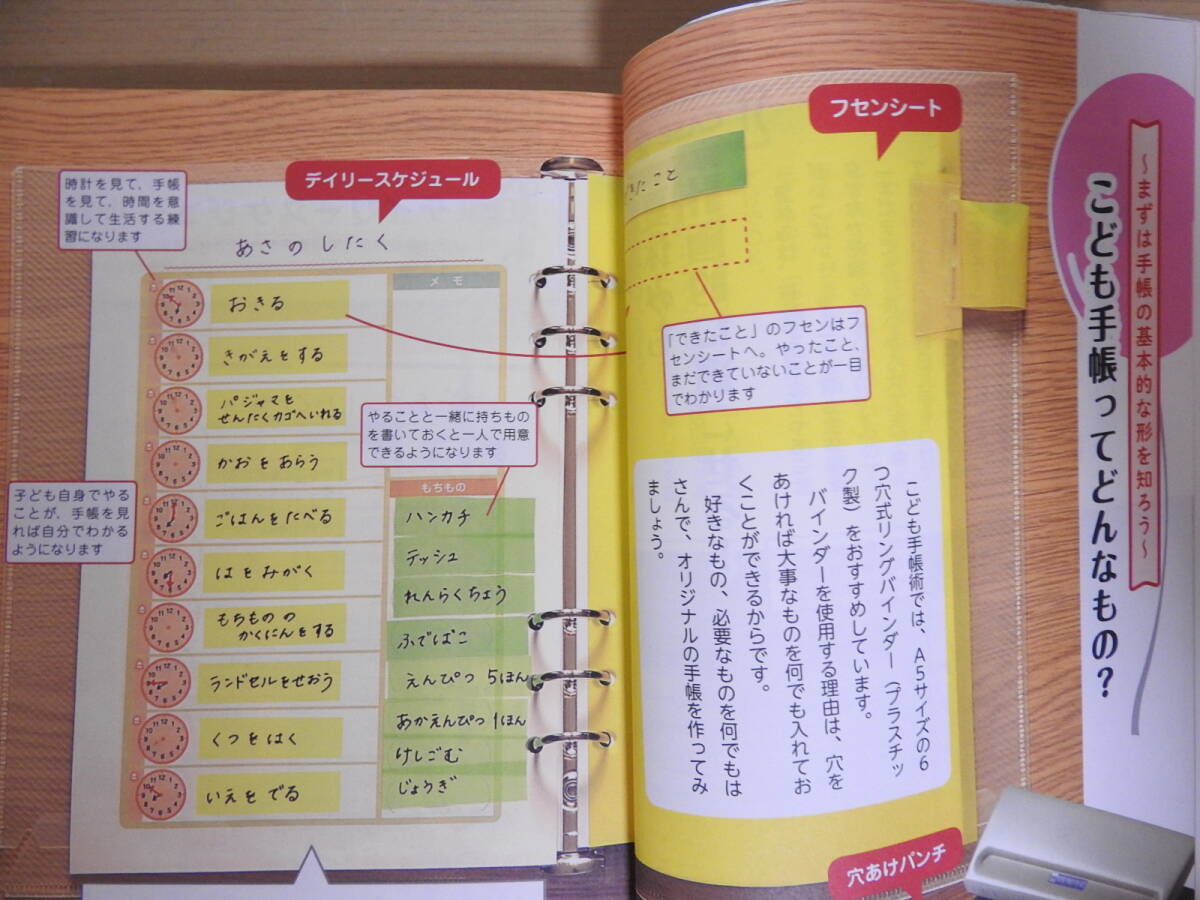 デイリースケジュール
時計を見て、手帳
を見て、時間を意
識して生活する練
習になります
あさのしたく
おきる
きがえをする
パジャマを
せんたくカゴへいれる
かおをあらう
ごはんをたべる
はをみがく
もちものの
かくにんをする
ランドセルをせおう
くつをはく
いえをでる
子ども自身でやる
ことが、手帳を見
れば自分でわかる
ようになります
メモ
やることと一緒に持ちもの
を書いておくと一人で用意
できるようになります
もちもの
ハンカチ
テッシュ
れんらくちょう
ふでばこ
えんぴつ 5ほん
あかえんぴつ 1ほん
けしごむ
じょうぎ
フセンシート
きたこと
「できたこと」のフセンはフ
センシートへ。やったこと、
まだできていないことが一目
でわかります
〜まずは手帳の基本的な形を知ろう〜
こども手帳ってどんなもの？
こども手帳術では、A5サイズの6
つ穴式リングバインダー（プラスチッ
ク製）をおすすめしています。
バインダーを使用する理由は、穴を
あければ大事なものを何でも入れてお
くことができるからです。
好きなもの、必要なものを何でもは
さんで、オリジナルの手帳を作ってみ
ましょう。
穴あけパンチ